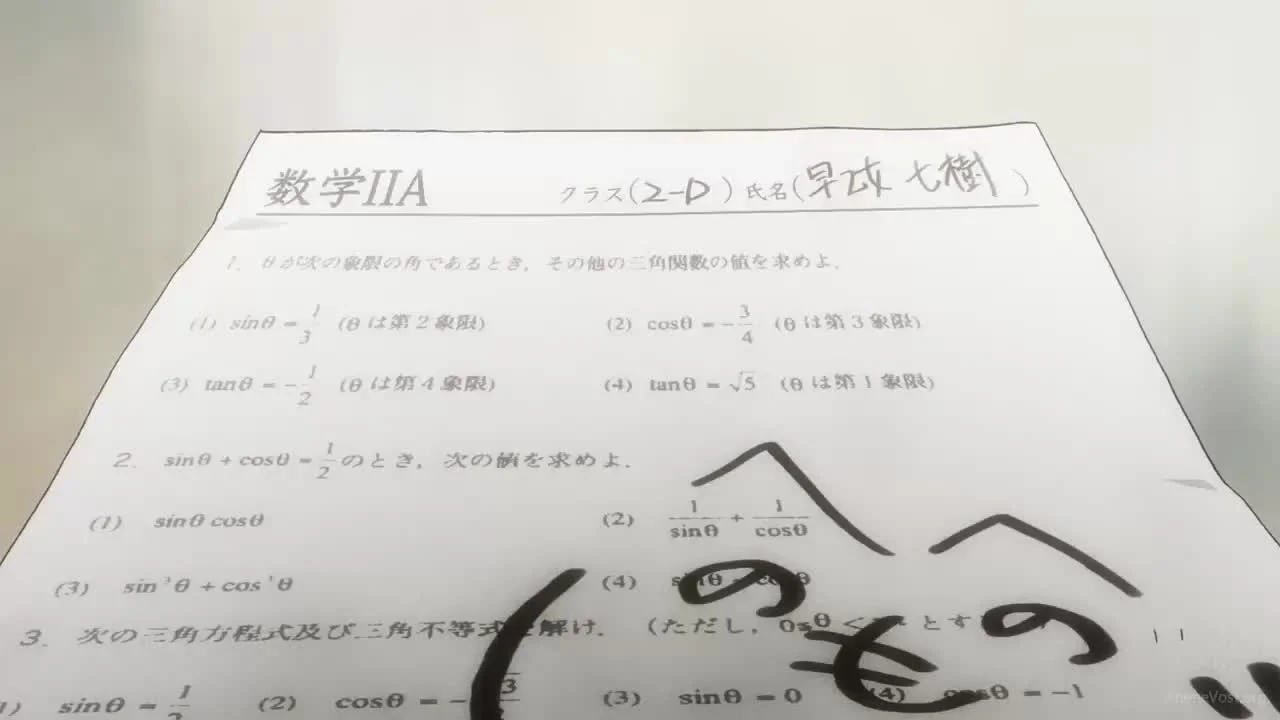 数学IIA クラス(2-D) 氏名(早坂 七樹)
1. θが次の象限の角であるとき，その他の三角関数の値を求めよ．
(1) sinθ = 1/3 (θは第2象限) (2) cosθ = -3/4 (θは第3象限)
(3) tanθ = -1/2 (θは第4象限) (4) tanθ = √5 (θは第1象限)
2. sinθ + cosθ = 1/2 のとき，次の値を求めよ．
(1) sinθ cosθ (2) 1/sinθ + 1/cosθ
(3) sin³θ + cos³θ (4) sinθ - cosθ
3. 次の三角方程式及び三角不等式を解け． (ただし，0≤θ<
(1) sinθ = 1/2 (2) cosθ = - (3) sinθ = 0 (4) cosθ = -1
へのへの
も